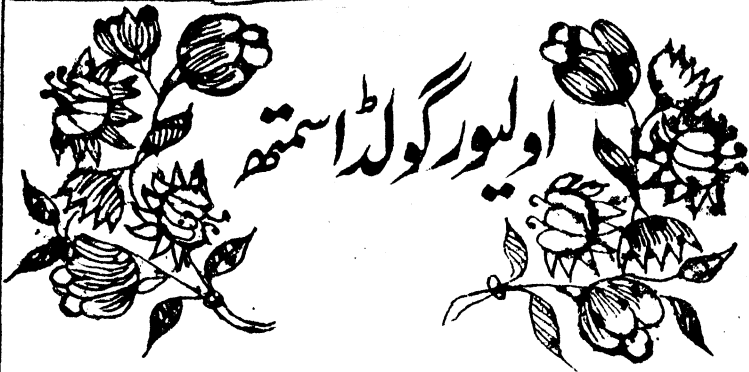 اولیور گولڈ اسمتھ